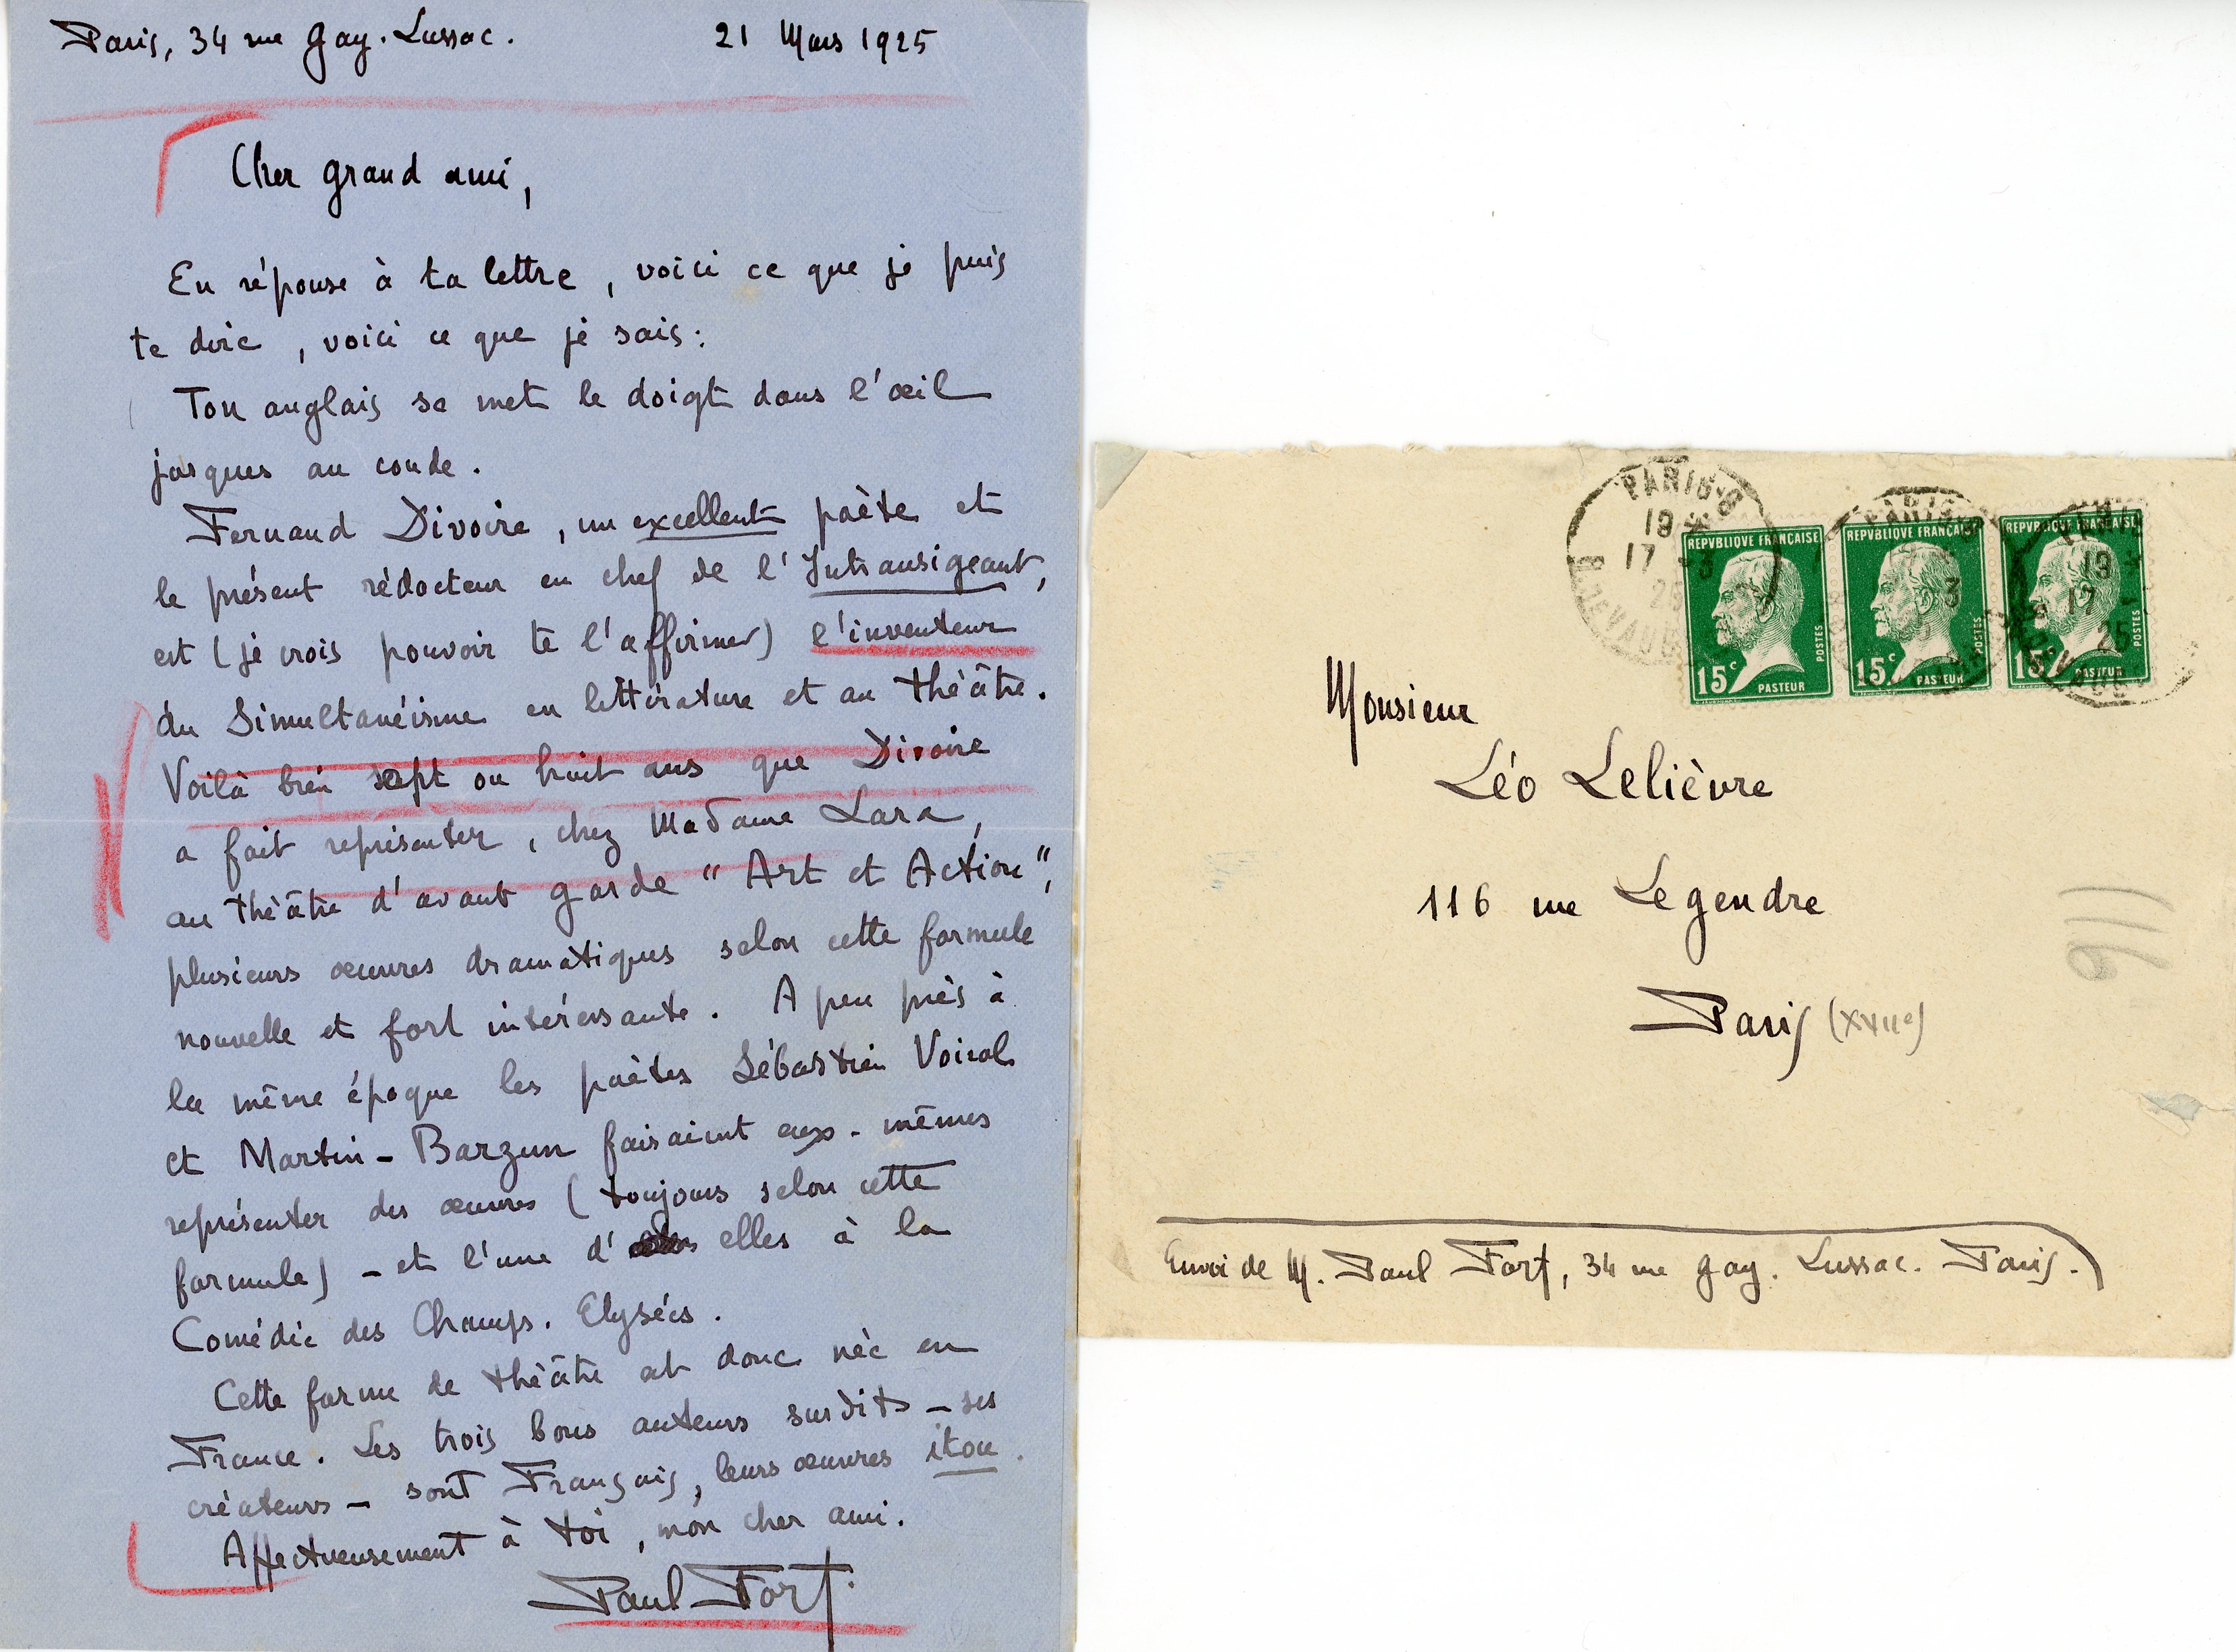 Paris, 34 rue Gay-Lussac. 21 Mars 1925
Cher grand ami,
En réponse à ta lettre, voici ce que je puis
te dire, voici ce que je sais :
Ton anglais se met le doigt dans l'œil
jusques au coude.
Fernand Divoire, un excellent poète et
le présent rédacteur en chef de l'Intransigeant,
est (je crois pouvoir te l'affirmer) l'inventeur
du Simultanéisme en littérature et au théâtre.
Voilà bien sept ou huit ans que Divoire
a fait représenter, chez Madame Lara,
au théâtre d'avant garde "Art et Action",
plusieurs œuvres dramatiques selon cette formule
nouvelle et fort intéressante. A peu près à
la même époque les poètes Sébastien Voirol
et Martin-Barzun faisaient eux-mêmes
représenter des œuvres (toujours selon cette
formule) - et l'une d' elles à la
Comédie des Champs-Elysées.
Cette forme de théâtre est donc née en
France. Les trois bons auteurs susdits - ses
créateurs - sont Français, leurs œuvres itou.
Affectueusement à toi, mon cher ami.
Paul Fort
PARIS-8
19
17 -3
25
REPVBLIQUE FRANÇAISE
15c
POSTES
PASTEUR
REPVBLIQUE FRANÇAISE
15c
POSTES
PASTEUR
REPVBLIQUE FRANÇAISE
15c
POSTES
PASTEUR
Monsieur
Léo Lelièvre
116 rue Legendre
Paris (XVIIe)
116
Envoi de M. Paul Fort, 34 rue Gay-Lussac. Paris.